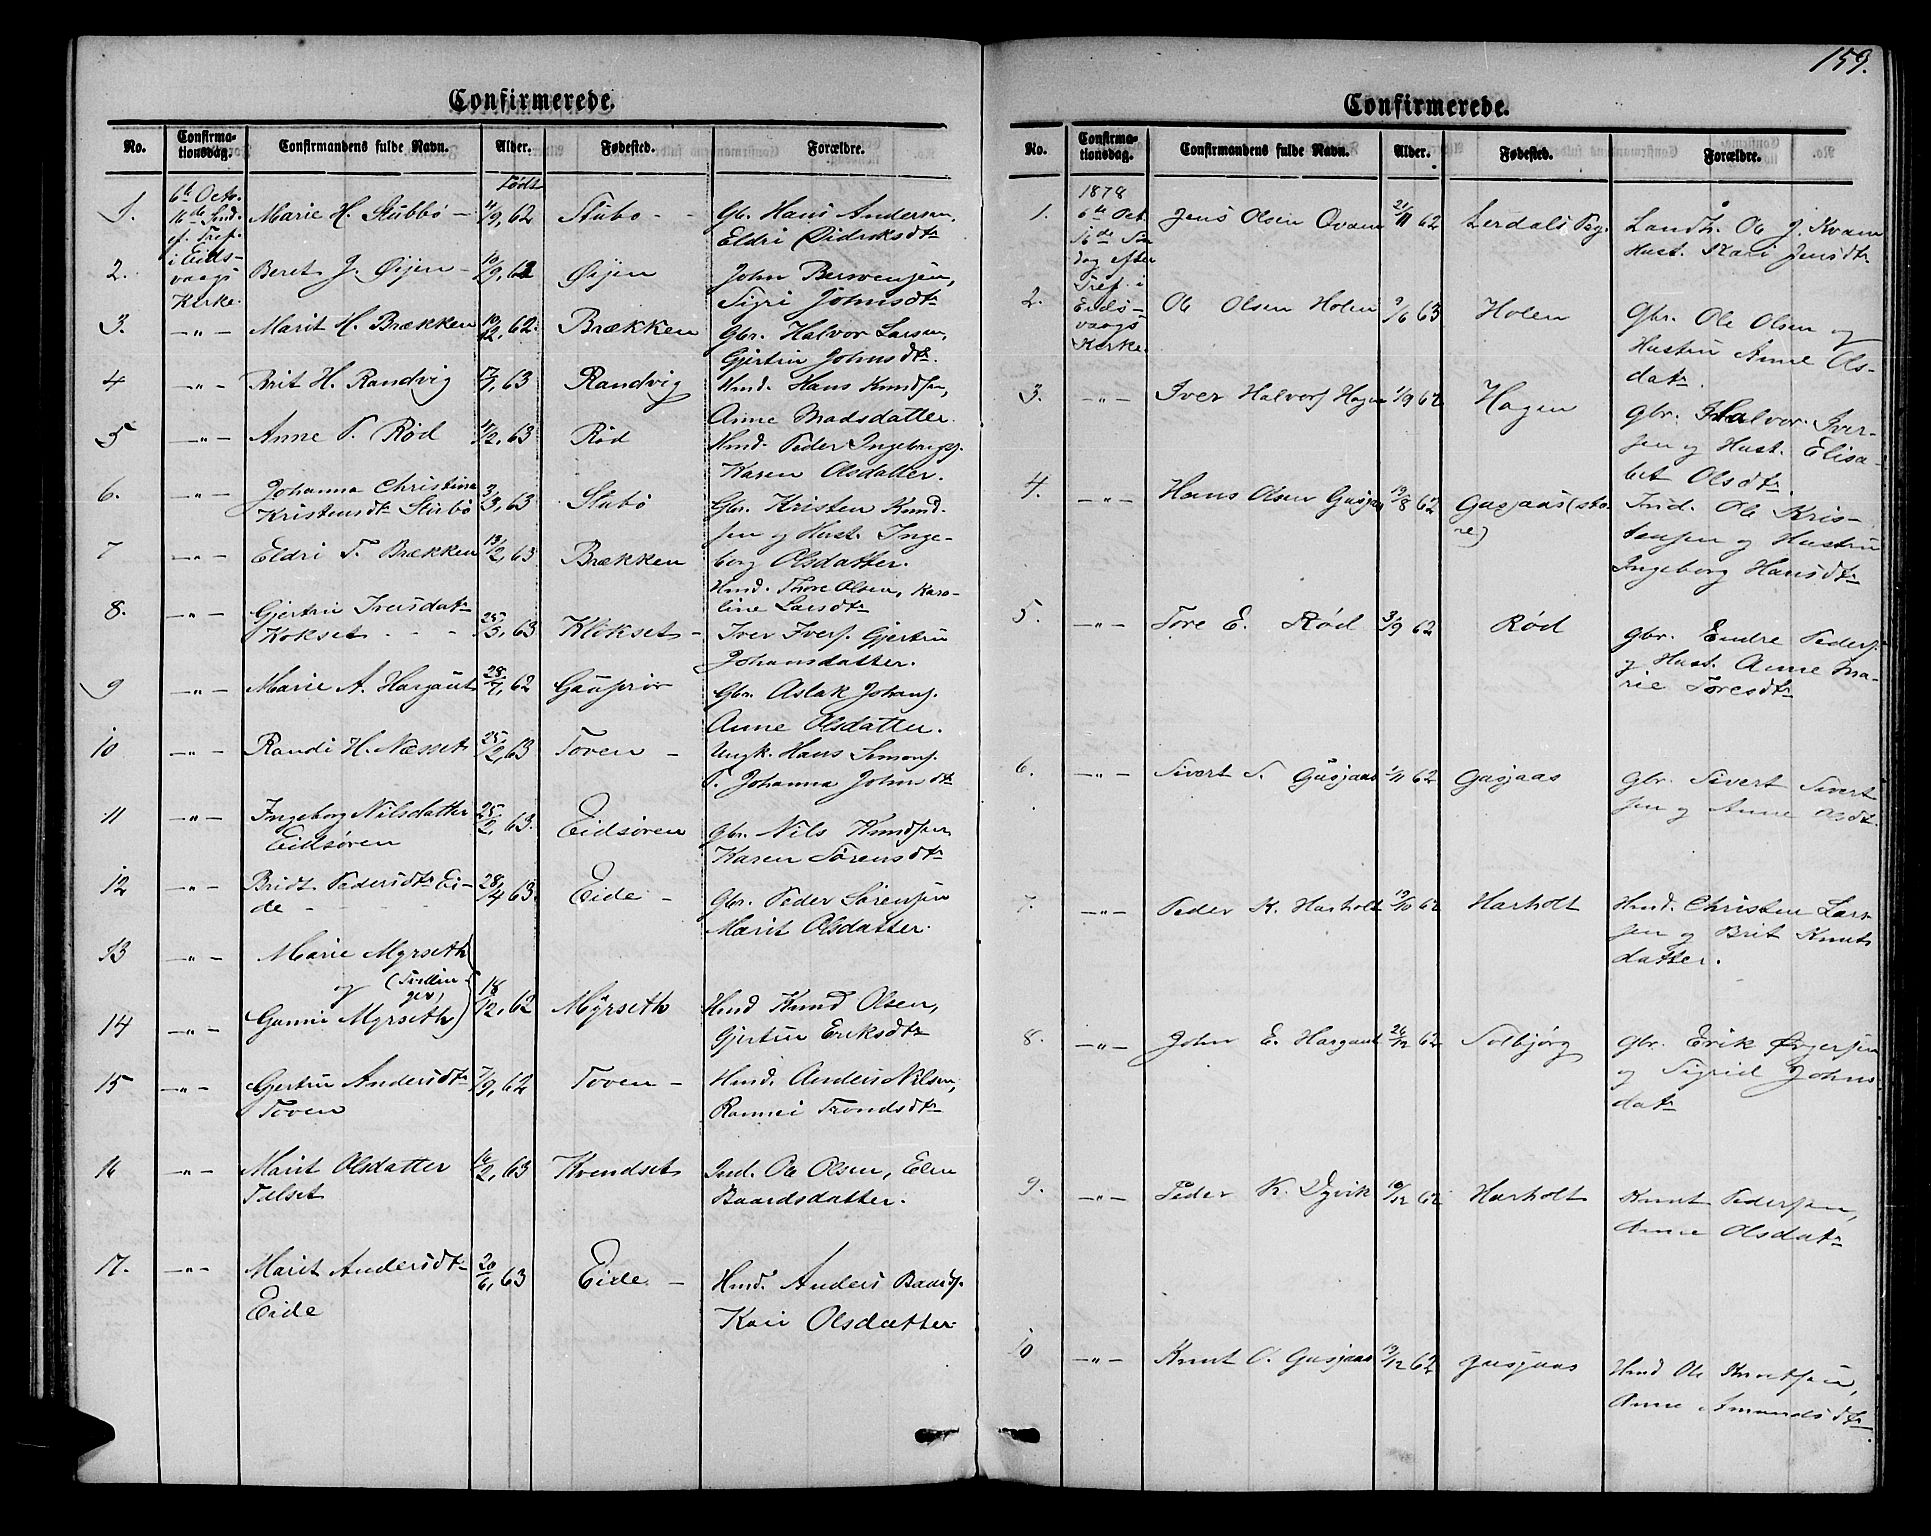 159.
Confirmerede.
No. Confirma- tionsdag. Confirmandens fulde Navn. Alder. Fødested. Forældre.
Født
1. 6te Octo. Marie H. Stubbø – 62 Stubø - - Gbr. Hans Andersen,
16de Snd. Eldri Didriksdtr
ef. Tref.
i Eids-
vaags
Kirke.
2. Beret J. Øijen – 62 Øijen John Bersvensen,
Sigri Johnsdtr
3. –"– Marit H. Brækken 62. Brækken Gbr. Halvor Larsen,
Gjertru Johnsdtr.
4 –"– Brit H. Randvig 63 Randvig Hmd. Hans Knudsen,
Anne Madsdatter.
5 –"– Anne P. Rød 63 Rød Hmd. Peder Ingebrigs.
Karen Olsdatter.
6. –"– Johanna Christina 3/3, 63 Stubø Gbr. Kristen Knud-
Kristensdtr Stubø sen og Hust. Inge-
borg Olsdatter.
7 –"– Eldri T. Brækken 63 Brækken Hmd. Thore Olsen, Karo-
line Larsdtr
8. –"– Gjertru Iversdatr 25/3, 63 Klokset – Iver Ivers. Gjertru
Kokset - - - Johansdatter.
9 –"– Marie A. Hargaut 28/7, 62 Gaaprør Gbr. Aslak Johans.
Anne Olsdatter.
10 –"– Randi H. Næsset 25/2, 63 Toven – Ungk. Hans Simons.
P. Johanna Johnsdtr
11 –"– Ingeborg Nilsdatter 25/2, 63. Eidsøren Gbr. Nils Knudsen
Eidsøren Karen Sørensdtr
12 –"– Bridt Pedersdtr Ei- 28/4 63. Eide – Gbr. Peder Sørensen
de - Marit Olsdatter.
13 –"– Marie Myrseth
og (Tvillin-
ger) 18/12, 62 Myrseth Hmd Knud Olsen,
14 –"– Gunni Myrseth) Gjertru Eriksdtr
15 –"– Gjertru Andersdtr 7/9, 62 Toven – Hmd. Anders Nilsen,
Toven Rannei Trondsdtr
16 –"– Marit Olsdatter 16/2, 63 Kvendset Ind. Ole Olsen, Elen
Tilset Baardsdatter.
17. –"– Marit Andersdtr 20/6, 63 Eide. – Hmd. Anders Baards.
Eide Kari Olsdatter.
Confirmerede.
No. Confirma- tionsdag. Confirmandens fulde Navn. Alder. Fødested. Forældre.
1. 1878 Jens Olsen Qvam 21/11 62 Lerdals Pg. Landh. Ole J. Kvam
6te Oct Hust. Kari Jensdtr
16de Søn
dag efter
Tref. i
Eids-
vaags
Kirke.
2. Ole Olsen Holen 9/6 63 Holen Gbr. Ole Olsen og
Hustru Anne Ols-
datr.
3. –"– Iver Halvors Hagen 1/9 62 Hagen Gbr. Halvor Iver-
sen og Hust. Elisa-
bet Olsdtr.
4. –"– Hans Olsen Gusjaas 19/8 62 Gusjaas (sto- Ind. Ole Kris-
re) tensen og Hustru
Ingeborg Hansdtr
5. –"– Tore E. Rød 3/9 62 Rød Gbr. Endre Peders.
og Hust. Anne Ma-
rie Toresdtr
6. –"– Sivert S. Gusjaas 1/11 62 Gusjaas Gbr. Sivert Sivert
sen og Anne Olsdt.
7. –"– Peder K. Harholt 19/10 62 Harholt Hmd. Christen Lar-
sen og Brit Knuts
datter.
8. –"– John E. Hargaut 26/12 62 Solbjørg Gbr. Erik
og Sigrid Johns
datr
9. –"– Peder K. Dyvik 19/12 62 Harholt Knut Pedersen,
Anne Olsdatr
10 –"– Knut O. Gusjaas 19/12 62 Gusjaas Hmd Ole Knutsen,
Anne Amundsdtr.